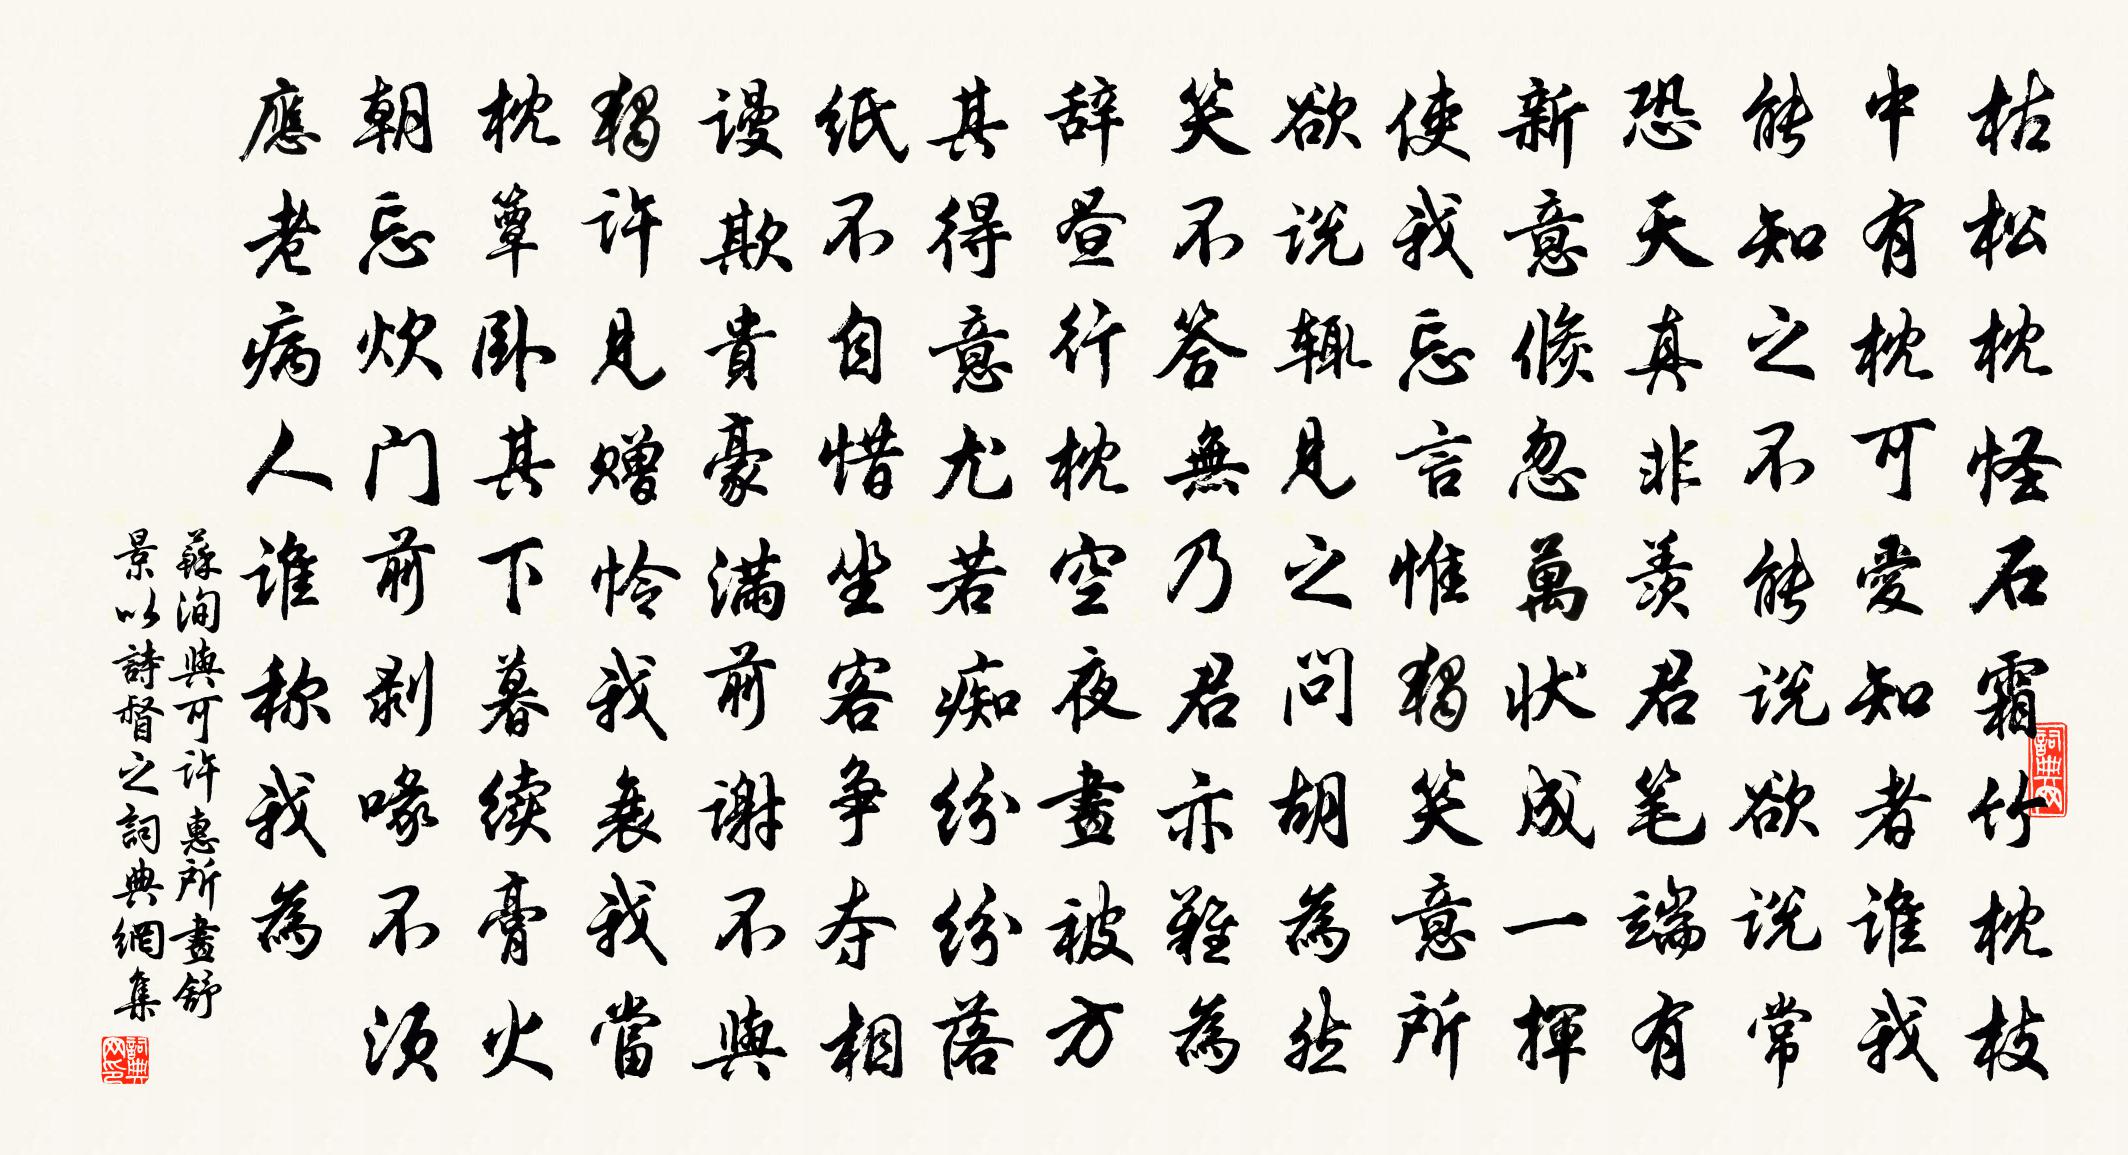 枯松枕枕怪石霜竹枕枝
中有枕可愛知者谁我
能知之不能说欲说常
恐天真非羨君笔端有
新意倏忽萬状成一揮
使我忘言惟獨笑意所
欲说辄見之问胡為然
笑不答無乃君亦難為
辞昼行枕空夜畫被方
其得意尤若痴纷纷落
纸不自惜坐客争夺相
谩欺貴豪满前谢不與
獨许見赠怜我衰我當
枕簟卧其下暮续膏火
朝忘炊门前剥啄不须
應老病人谁称我為
蘇洵與可许惠所畫舒
景以詩督之詞典網集